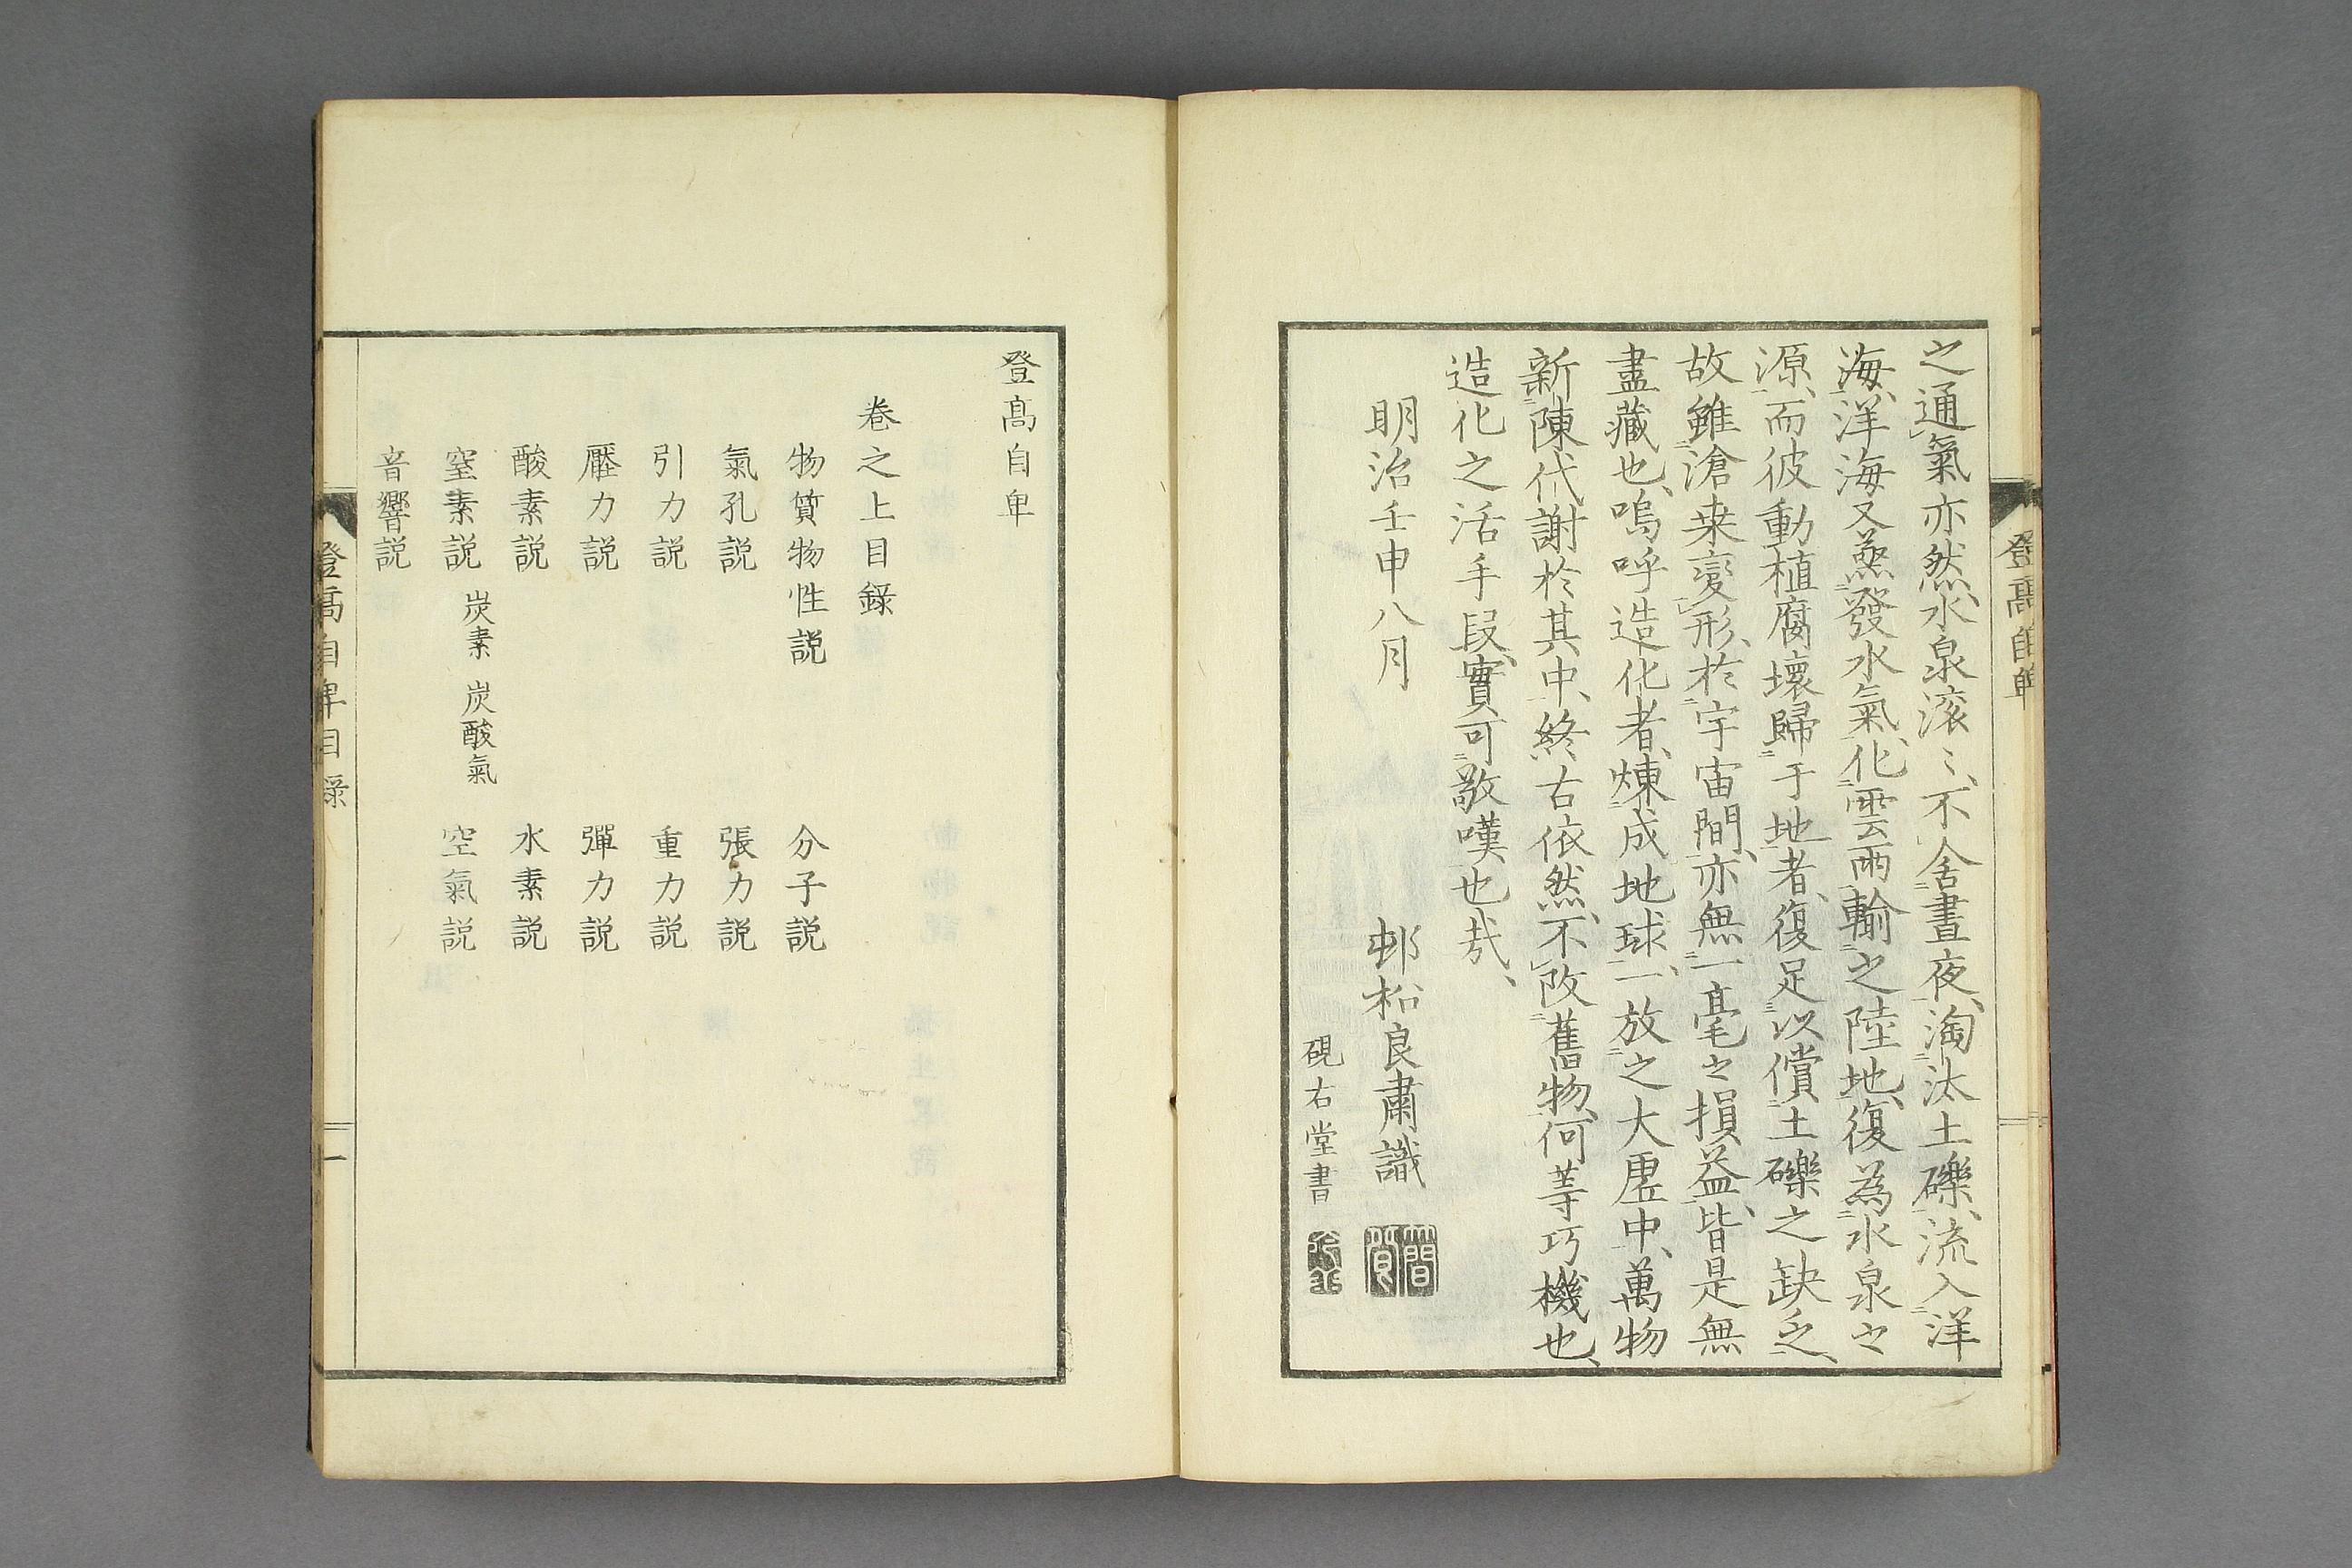 之通氣亦然、水泉滚〻、不舍晝夜、淘汰土礫、流入洋
海、洋海又蒸發水氣、化雲雨輸之陸地、復為水泉之
源、而彼動植腐壞歸于地者、復足以償土礫之缺乏、
故雖滄桒變形、於宇宙間、亦無一毫之損益、皆是無
盡藏也、嗚呼造化者、煉成地球、一放之大虗中、萬物
新陳代謝於其中、終古依然、不改舊物、何等巧機也、
造化之活手段、實可敬嘆也㢤、
明治壬申八月
邨松良肅識
硯右堂書
登髙自卑
登髙自卑
卷之上目錄
物質物性説　分子説
氣孔説　張力説
引力説　重力説
壓力説　彈力説
酸素説　水素説
窒素説　炭素　炭酸氣　空氣説
音響説
登髙自卑目録　一